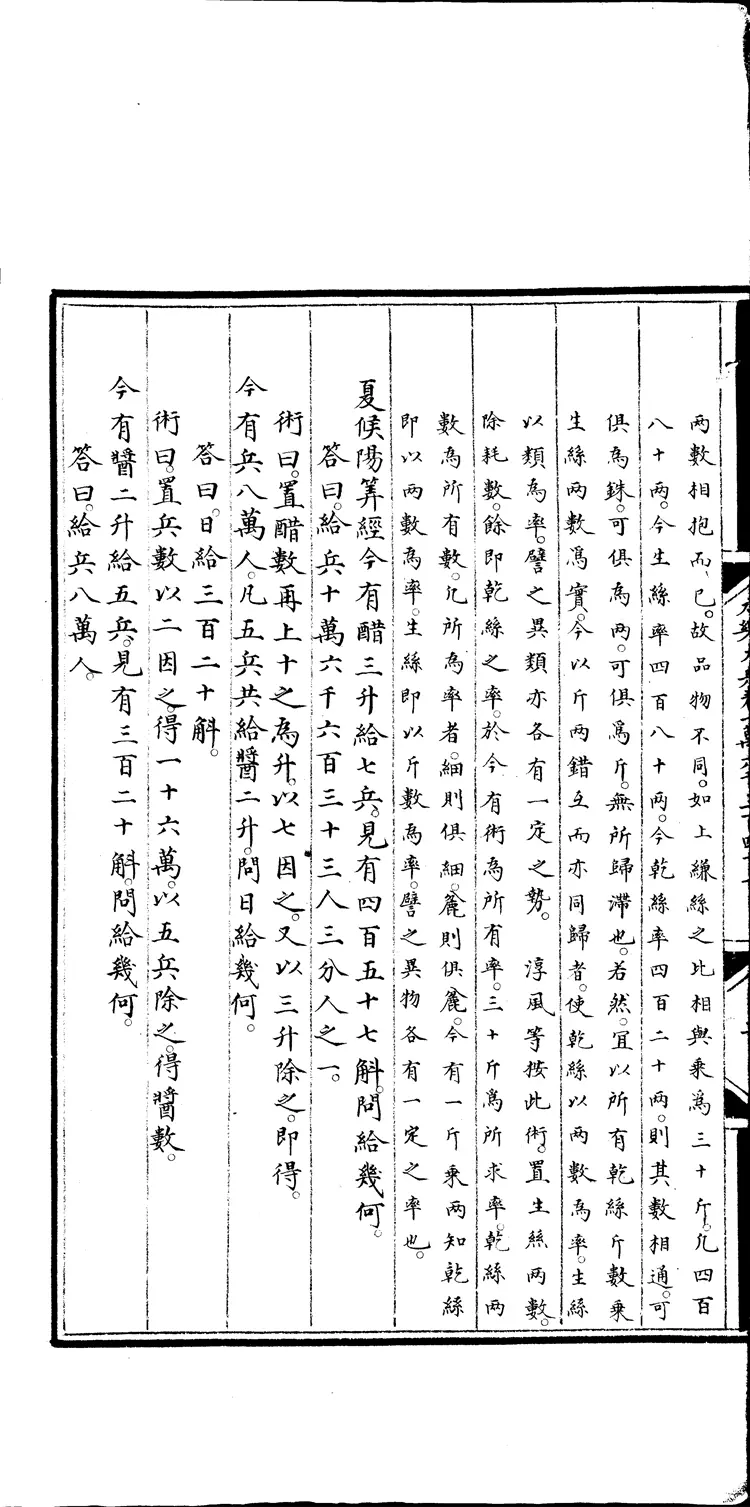 兩數相抱而已。故品物不同。如上縑絲之比相與乗爲三十斤。凢四百
八十兩。今生絲率四百八十兩。今乾絲率四百二十兩。則其數相通。可
俱為銖。可俱為兩。可俱爲斤。無所歸滯也。若然。宜以所有乾絲斤數乗
生絲兩數爲實。今以斤兩錯互而亦同歸者。使乾絲以兩數為率。生絲
以類為率。譬之異類亦各有一定之勢。 淳風等按此術。置生絲兩數。
除耗數。餘即乾絲之率。於今有術為所有率。三十斤爲所求率。乾絲兩
數為所有數。凢所為率者。細則俱細。麄則俱麄。今有一斤乗兩知乾絲
即以兩數為率。生絲即以斤數為率。譬之異物各有一定之率也。
夏候陽筭經今有醋三升給七兵。見有四百五十七斛。問給幾何。
答曰。給兵十萬六千六百三十三人三分人之一。
術曰。置醋數再上十之為升。以七因之。又以三升除之。即得。
今有兵八萬人。凡五兵共給醬二升。問日給幾何。
答曰。日給三百二十斛。
術曰。置兵數以二因之。得一十六萬。以五兵除之。得醬數。
今有醬二升給五兵。見有三百二十斛。問給幾何。
答曰。給兵八萬人。